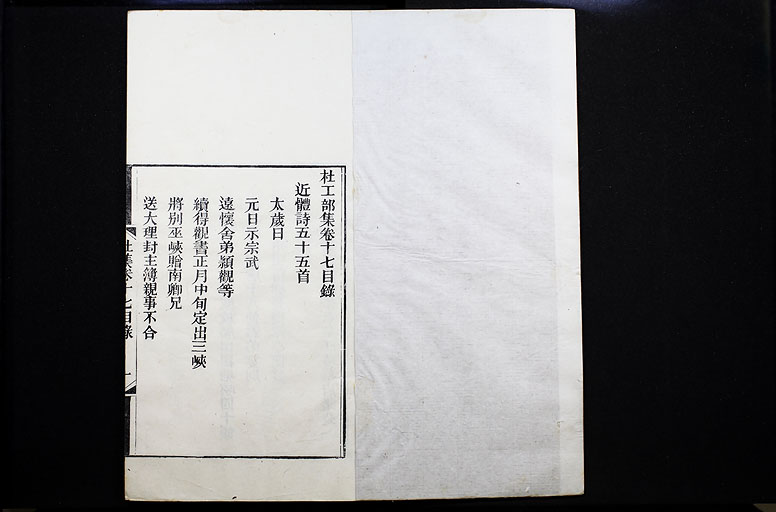 杜工部集卷十七目錄
近體詩五十五首
太歲日
元日示宗武
遠懷舍弟潁觀等
續得觀書正月中旬定出三峽
將別巫峽贈南卿兄
送大理封主簿親事不合
杜集卷十七目錄 一